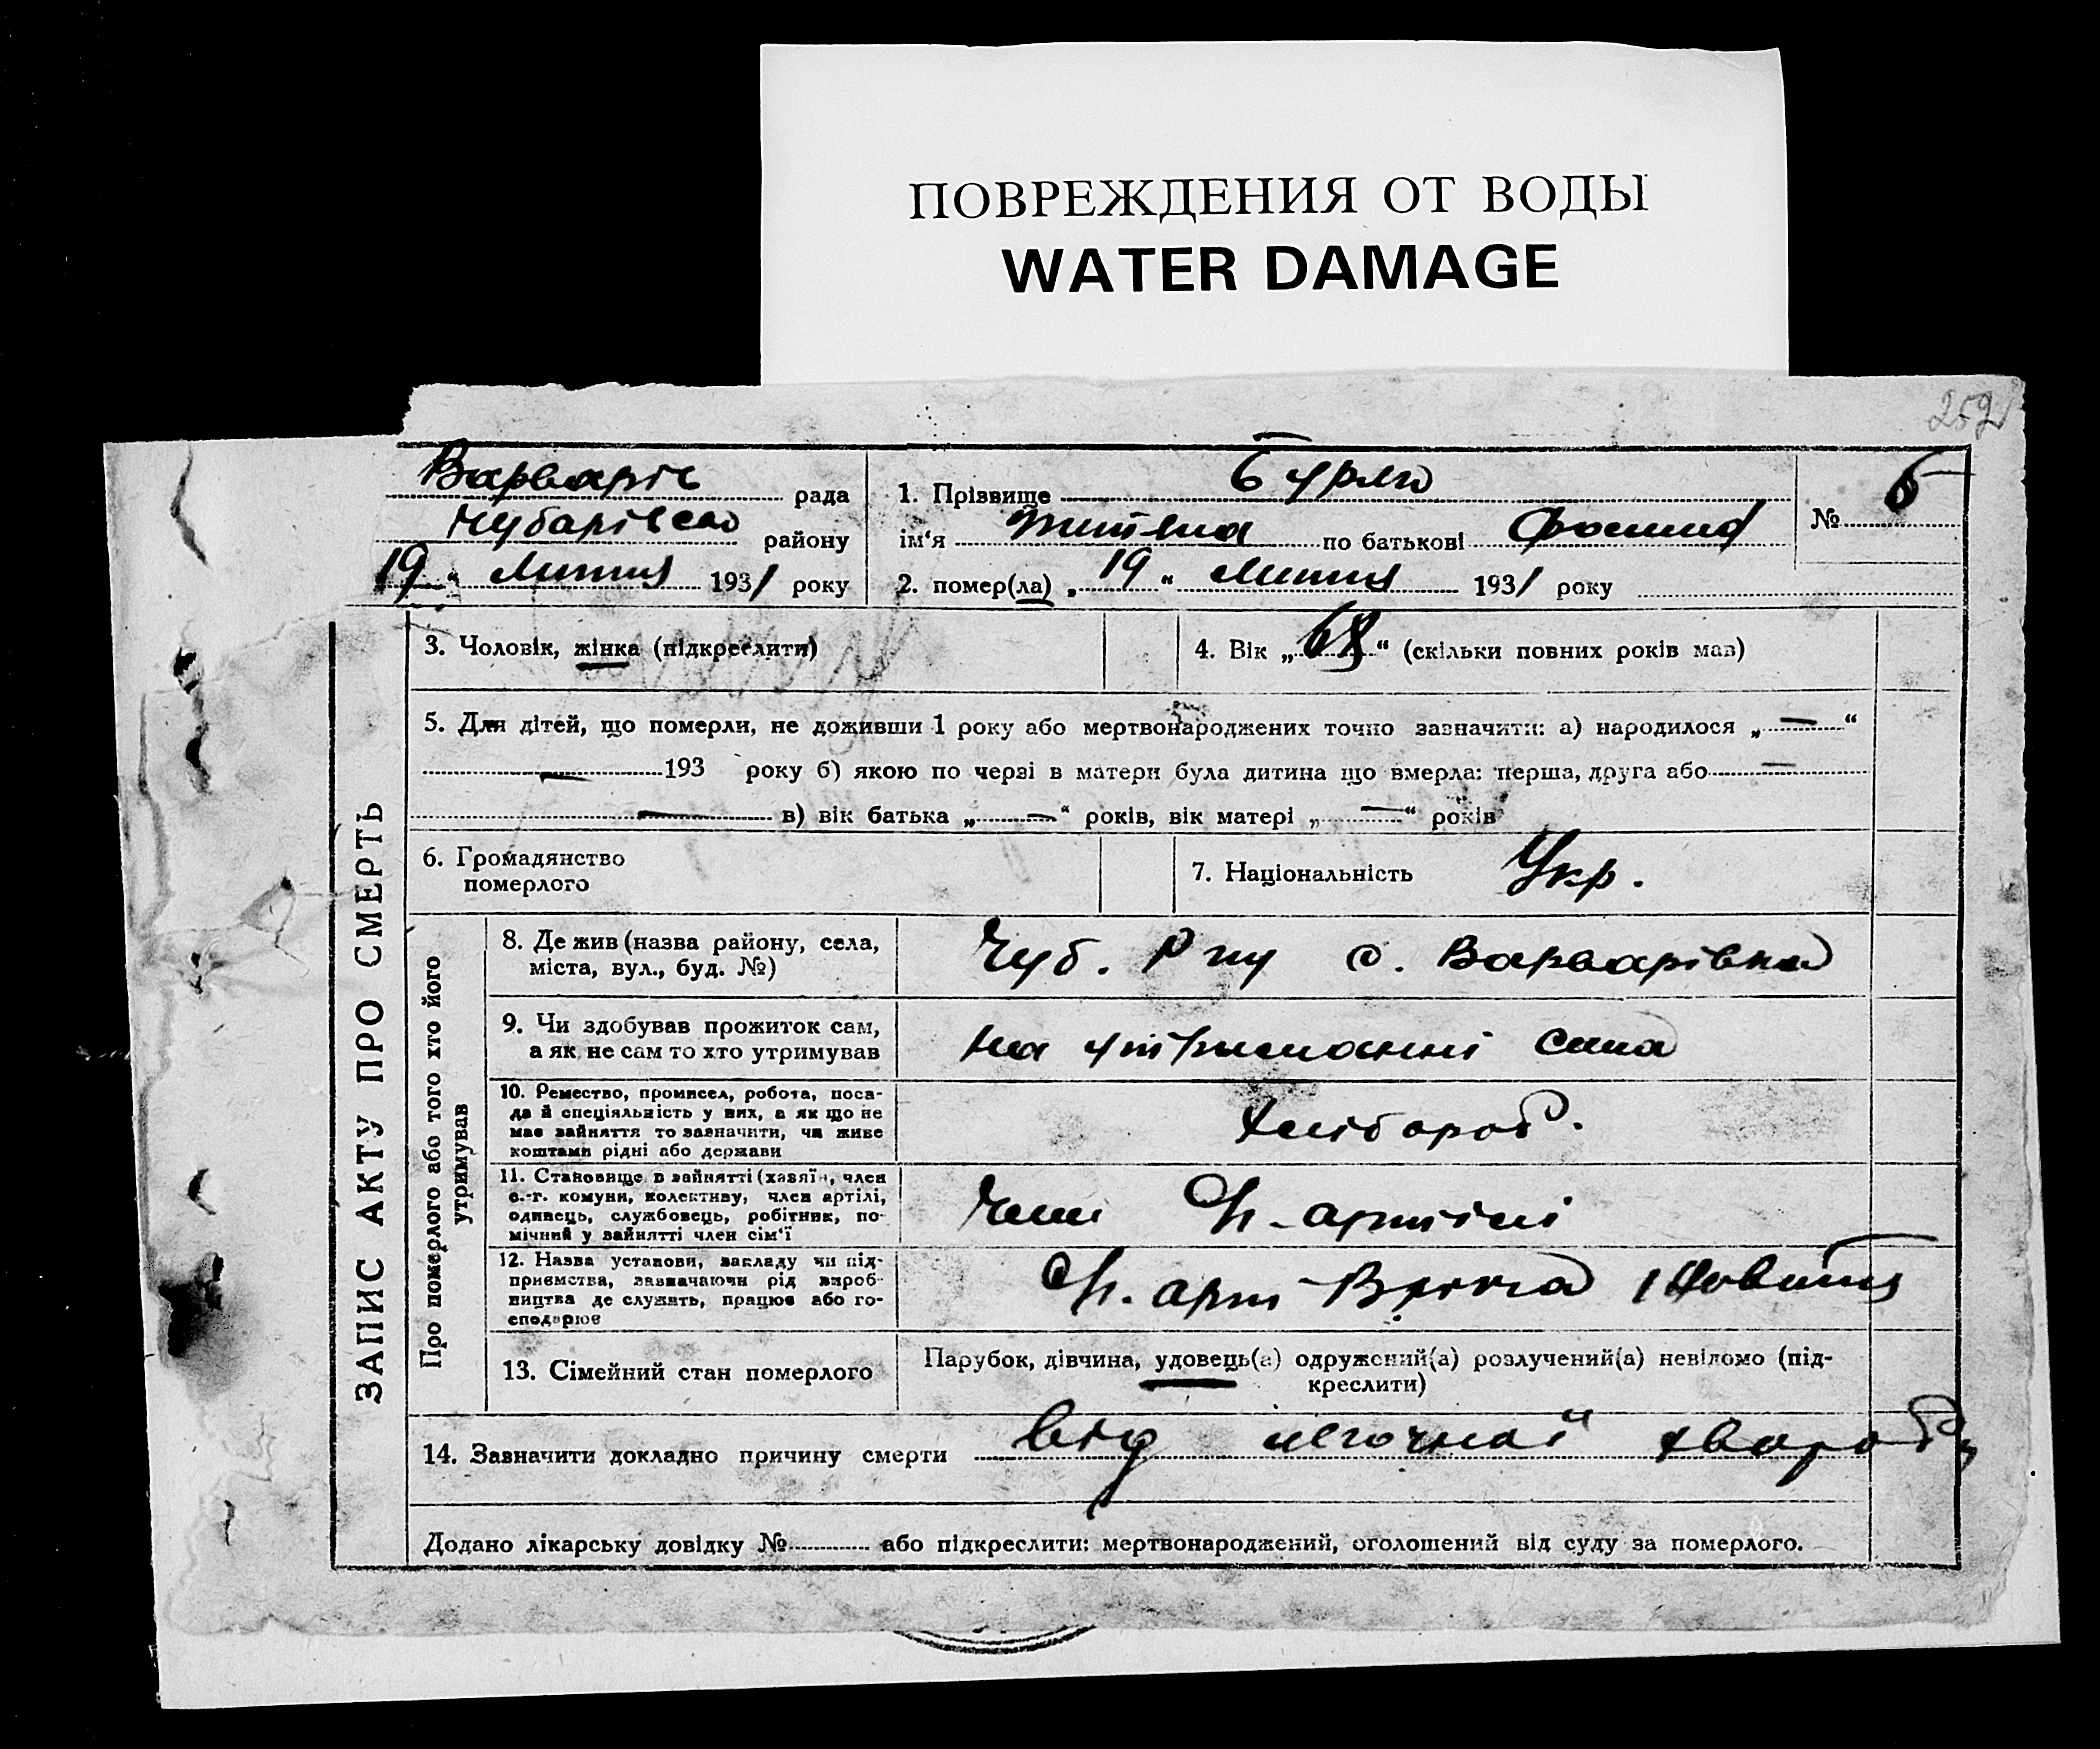 ПОВРЕЖДЕНИЯ ОТ ВОДЫ
WATER DAMAGE
252
Варварів рада
Чубарівсько району
19 " липня 1931 року
1. Прізвище Бурло
ім'я по батькові
2. помер(ла) „ 19 " липня 1931 року
№ 6
ЗАПИС АКТУ ПРО СМЕРТЬ
3. Чоловік, жінка (підкреслити)
4. Вік „ 68 " (скільки повних років мав)
5. Для дітей, що померли, не доживши 1 року або мертвонароджених точно зазначити: а) народилося „ — "
— 193 року б) якою по черзі в матери була дитина що вмерла: перша, друга або —
— в) вік батька „ — " років, вік матері „ — " років
6. Громадянство
померлого
7. Національність Укр.
Про померлого або того хто його
утримував
8. Де жив (назва району, села,
міста, вул., буд. №)
Чуб. Р ну с. Варварівка
9. Чи здобував прожиток сам,
а як не сам то хто утримував
на утриманні сина
10. Ремество, промисел, робота, поса-
да й спеціяльність у них, а як що не
має зайняття то зазначити, чи живе
коштами рідні або держави
хлібороб.
11. Становище в зайнятті (хазяїн, член
с.-г. комуни, колективу, член артілі,
одинець, службовець, робітник, по-
мічний у зайнятті член сім'ї
член с/г. артілі
12. Назва установи, закладу чи під-
приємства, зазначаючи рід вироб-
ництва де служить, працює або го-
сподарює
с/г. арт
13. Сімейний стан померлого
Парубок, дівчина, удовець(а) одружений(а) розлучений(а) невідомо (під-
креслити)
14. Зазначити докладно причину смерти від легочной хвороби
Додано лікарську довідку № або підкреслити: мертвонароджений, оголошений від суду за померлого.